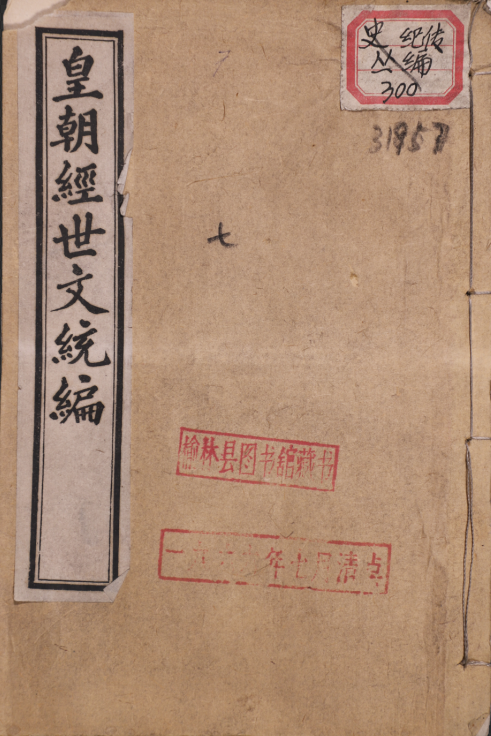 皇朝經世文統編
史 纪传
丛 编
300
31957
七
榆林县图书馆藏书
年七月清点